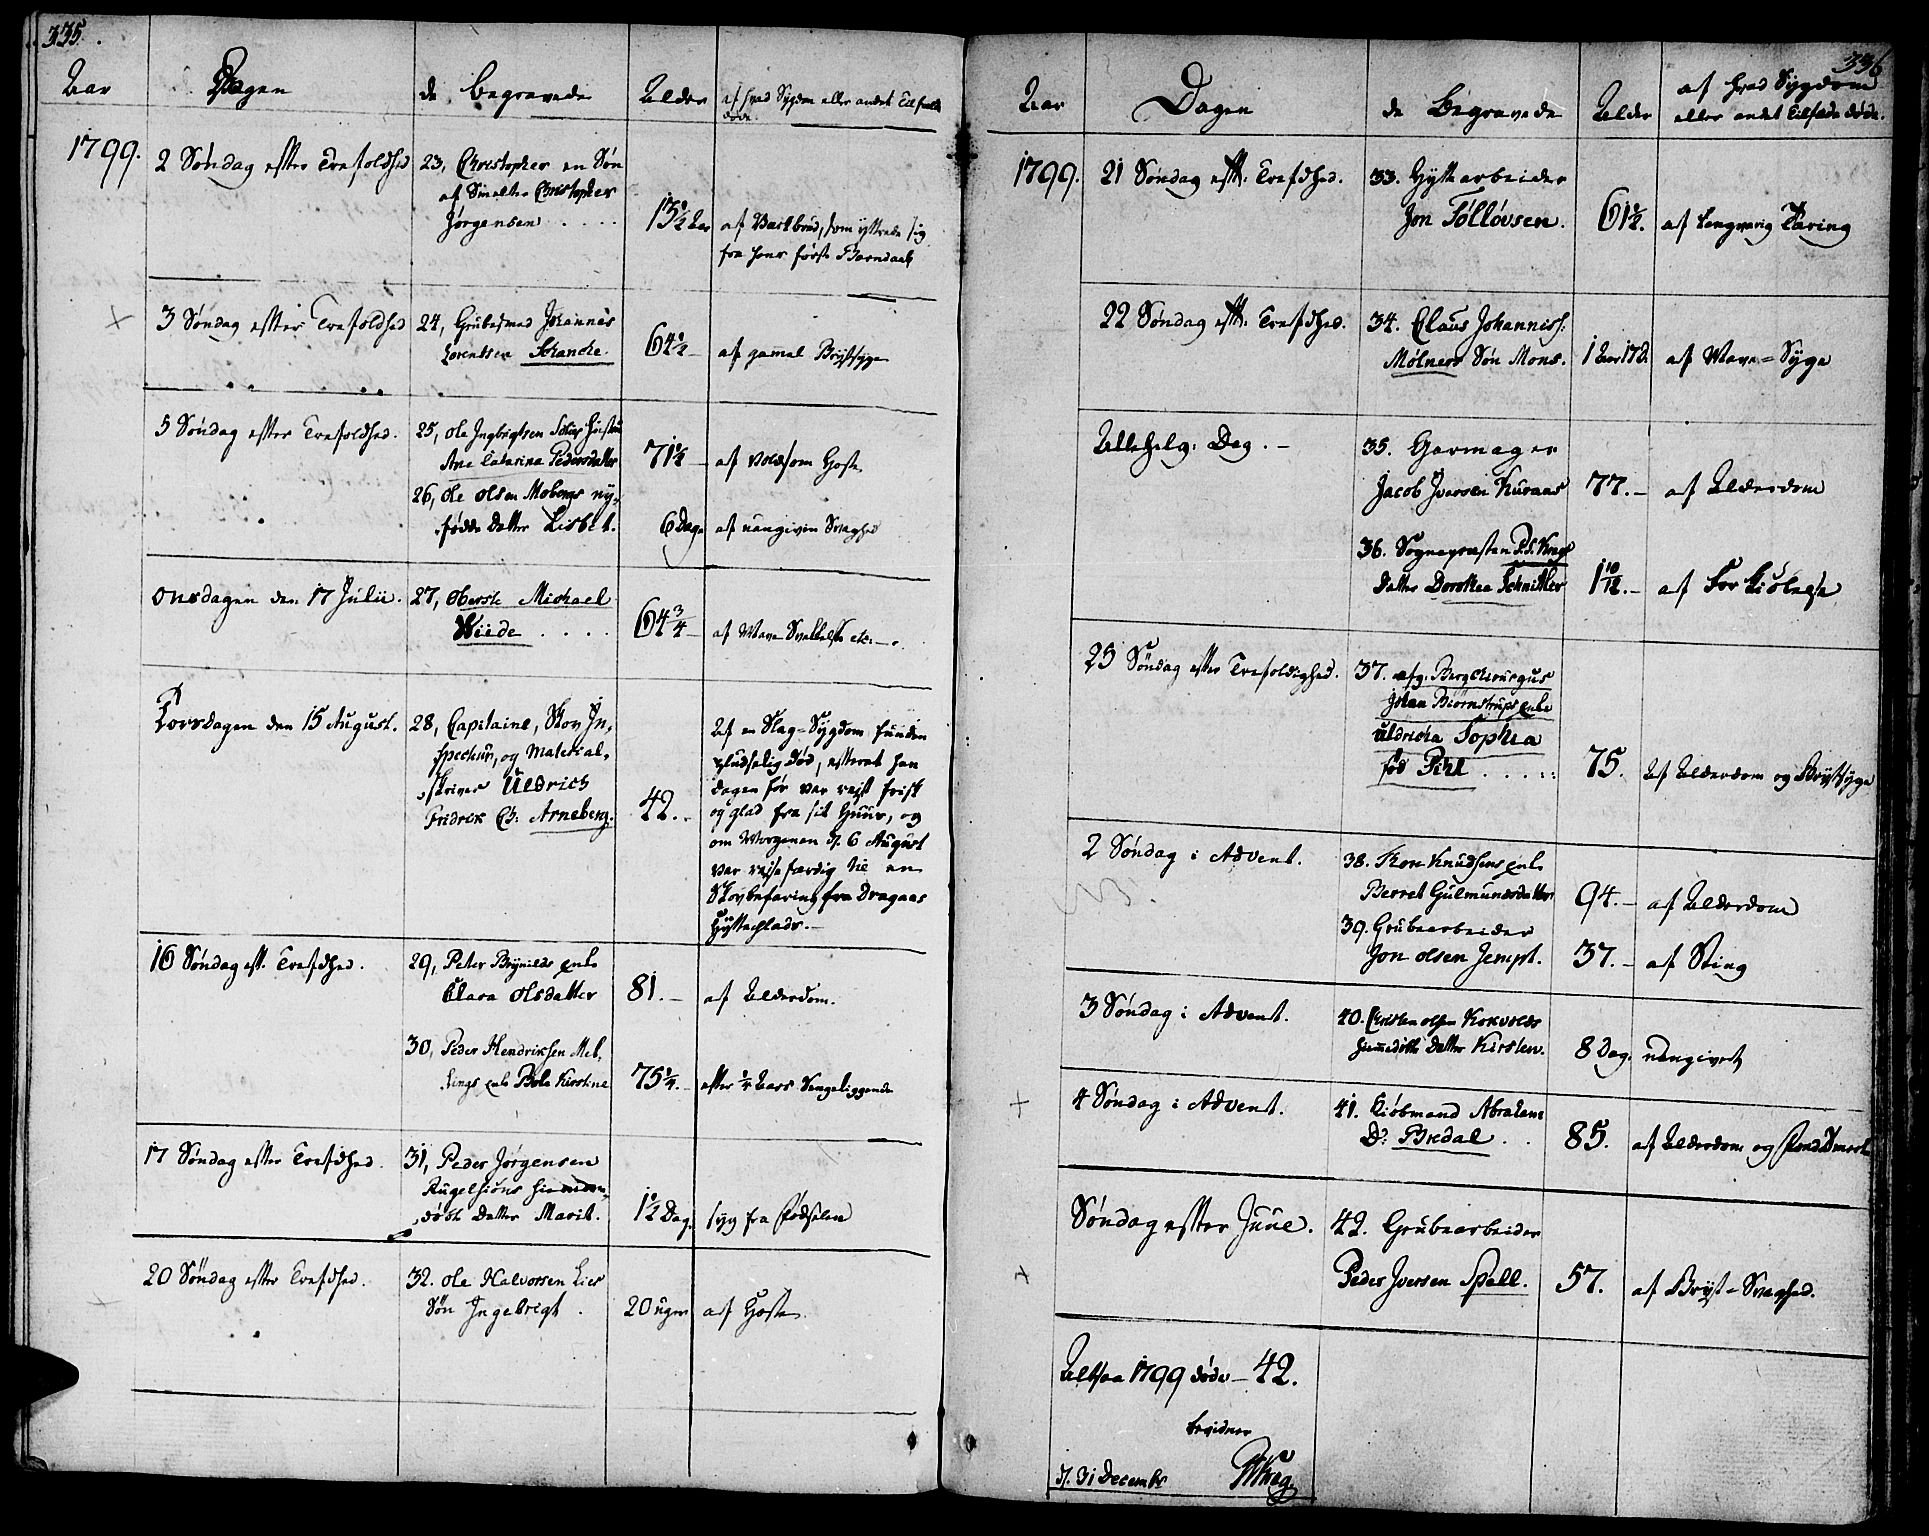 335.
Aar
Dagen
de Begravede
Alder
af hvad Sygdom eller andet Tilfælde
døde.
1799.
2 Søndag efter Trefoldhed
23, Christopher en Søn
af Smelter Christopher
Jørgensen . . . .
13½ Aar
af Barlbrud, som yttrede sig
fra hans første Barndaab
3 Søndag efter Trefoldhed
24, Grubesmed Johannes
Lorentsen Schancke.
64½
af gammel Brystsyge
5 Søndag efter Trefoldhed.
25, Ole Ingbrigtsen
Ane Catarina Pedersdatter
71½
af voldsom Hoste
26, Ole Olsen Mobergs ny-
fødde Datter Lisbet.
6 Dage
af uangiven Svaghed
Onsdagen den 17 Julii.
27, Oberst Michael
Wiide . . . .
64¾
af Mave Svækkelse etc.
Torsdagen den 15 August.
28, Capitaine, Skov In-
specteur, og Material-
skriver Uldrich
Fridrik Ch: Arneberg.
42.
Af en Slag-Sygdom funden
pludselig død, efterat han
dagen før var reist frisk
og glad fra sit Huus, og
om Morgenen d. 6 August
var reisefærdig til en
Skovbefaring fra Dragaas
Hytteplads.
16 Søndag eft. Trefdhed.
29, Peter Brynilds Enke
Clara Olsdatter
81.
af Alderdom.
30, Peder Hendriksen Mel-
lings Enke Bole Kirstine
75¼.
efter ¼ Aars Sengeliggende
17 Søndag efter Trefdhed.
31, Peder Jørgensen
Rugelsiøns hiemme-
døbt Datter Marit.
1½ Dag.
syg fra Fødselen
20 Søndag efter Trefdhed.
32. Ole Halvorsen Lies
Søn Ingebrigt .
20 uger
af Hoste.
336
Aar
Dagen
de Begravede
Alder
af hvad Sygdom
eller andet Tilfælde døde.
1799.
21 Søndag eft: Trefdhed.
33. Hyttearbeider
Jon Tølløvsen.
61½.
af langvarig Tæring
22 Søndag eft: Trefdhed.
34. Claus Johannisf:
Mølners Søn Mons.
1 Aar 17 d.
af Mave-Syge
Allehelg: Dag.
35. Garmager
Jacob Iversen Kuraas
77.
af Alderdom
36. Sognepræsten P. S. Krags
Datter Dorothea Schnitler
1 10/12.
af Forkiølelse
23 Søndag efter Trefoldighed.
37. afg. Bergchirurgus
Johan Biørnstrups Enke
Uldricha Sophia
fød Pihl . . . . .
75.
Af Alderdom og Brystsyge
2 Søndag i Advent.
38. Tron Knudsens Enke
Berret Gulmundsdatter
94.
af Alderdom
39. Grubearbeider
Jon Olsen Jempt.
37.
af Sting
3 Søndag i Advent.
40. Christen Olsen Kokvolds
hiemmedøbte Datter Kirsten.
8 Dag.
uangivet
4 Søndag i Advent.
41. Kiøbmand Abraham
D: Bredal . .
85.
af Alderdom og
Søndag efter Juul.
42. Grubearbeider
Peder Iversen Spell.
57.
af Bryst-Svaghed.
Altsaa 1799 døde - 42.
bevidner
d. 31 Decembr
PSKrag.